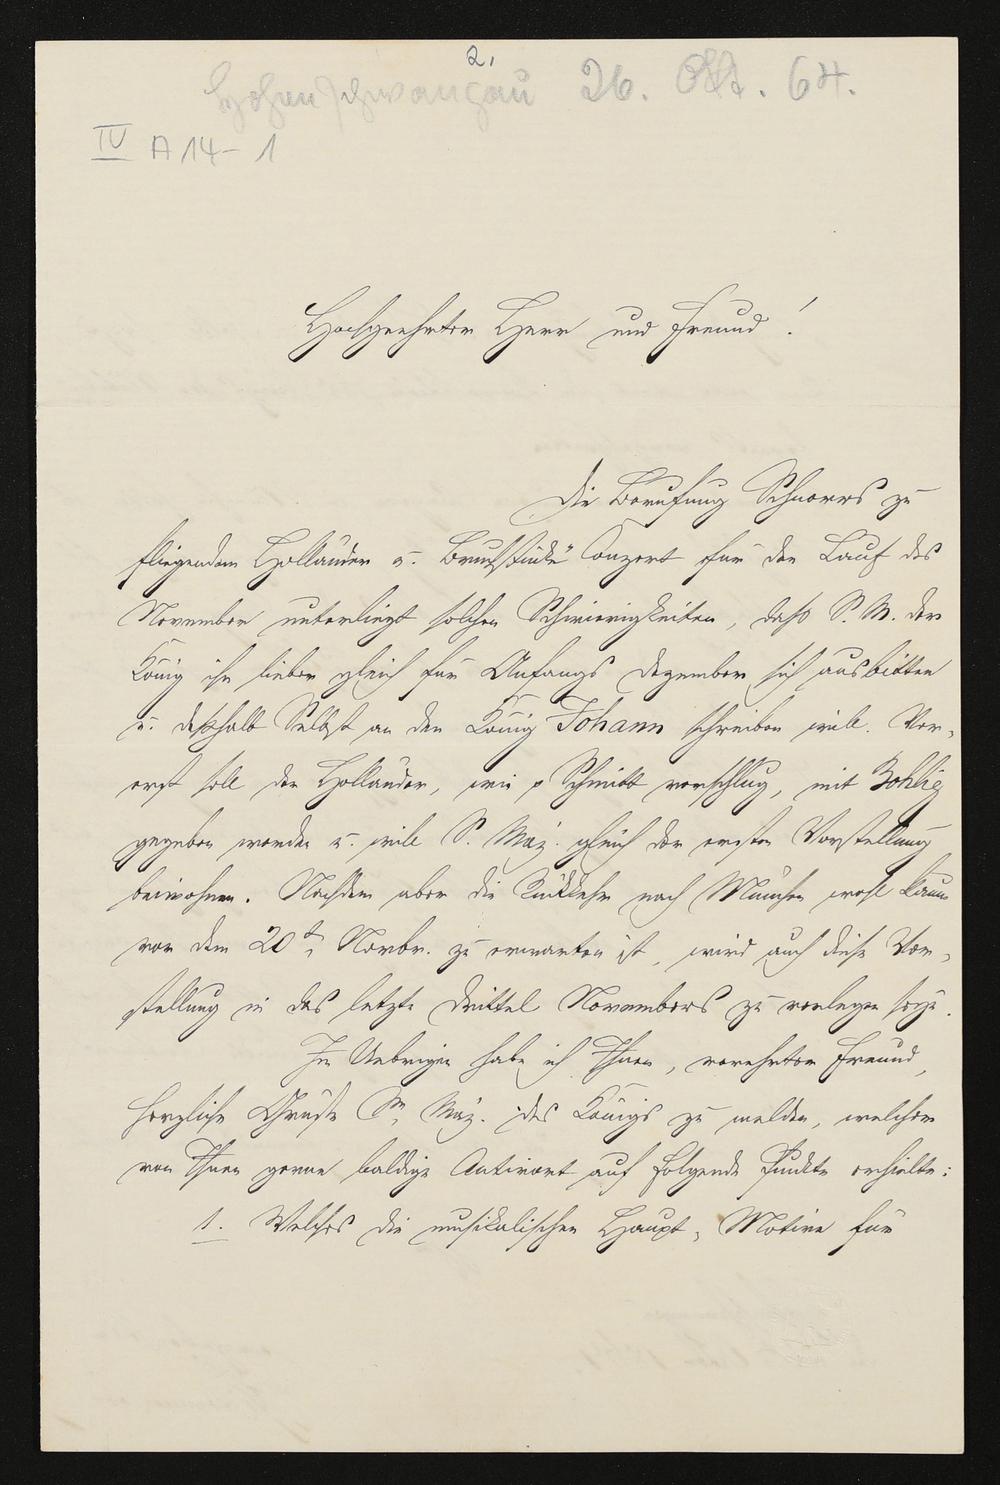 2,
Hohenschwangau 26. Okt. 64.
IV A 14 - 1
Hochgeehrter Herr und Freund!
Die Berufung Schnorrs zu
fliegendem Holländer u. Bruchstücke Conzert für den Lauf des
November unterliegt solchen Schwierigkeiten, daß S. M. der
König ihn lieber gleich für Anfangs Dezember sich ausbitten
u. deßhalb Selbst an den König Johann schreiben will. Vor-
erst soll der Holländer, wie p Schmitt vorschlug, mit
gegeben werden u. will S. Maj. gleich der ersten Vorstellung
beiwohnen. Nachdem aber die Rückkehr nach München wohl kaum
vor dem 20t. Novbr. zu erwarten ist, wird auch diese Vor-
stellung in das letzte Drittel Novembers zu verlegen seyn.
Im Uebrigen habe ich Ihnen, verehrter Freund,
herzliche Grüße Sr. Maj. des Königs zu melden, welcher
von Ihnen gerne baldige Antwort auf folgende Punkte erhielte:
1. Welches die musikalischen Haupt-Motive für